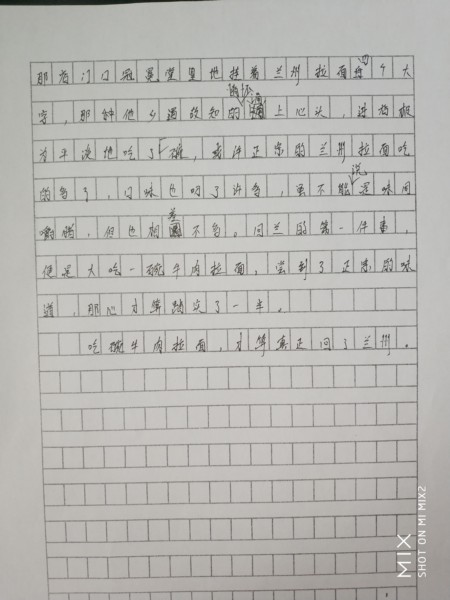 那店门口冠冕堂皇地挂着兰州拉面馆四个大
字,那种他乡遇故知的感涌上心头,进的极
为平淡地吃了一碗,或许正宗的兰州拉面吃
的多了,口味也叼了许多,虽不能说是味同
嚼蜡,但也相差不多。回兰的第一件事,
便是大吃一碗牛肉拉面,尝到了正宗的味
道,那心才算踏实了一半。
吃碗牛肉拉面,才算真正回了兰州。
MIX
SHOT ON MI MIX2